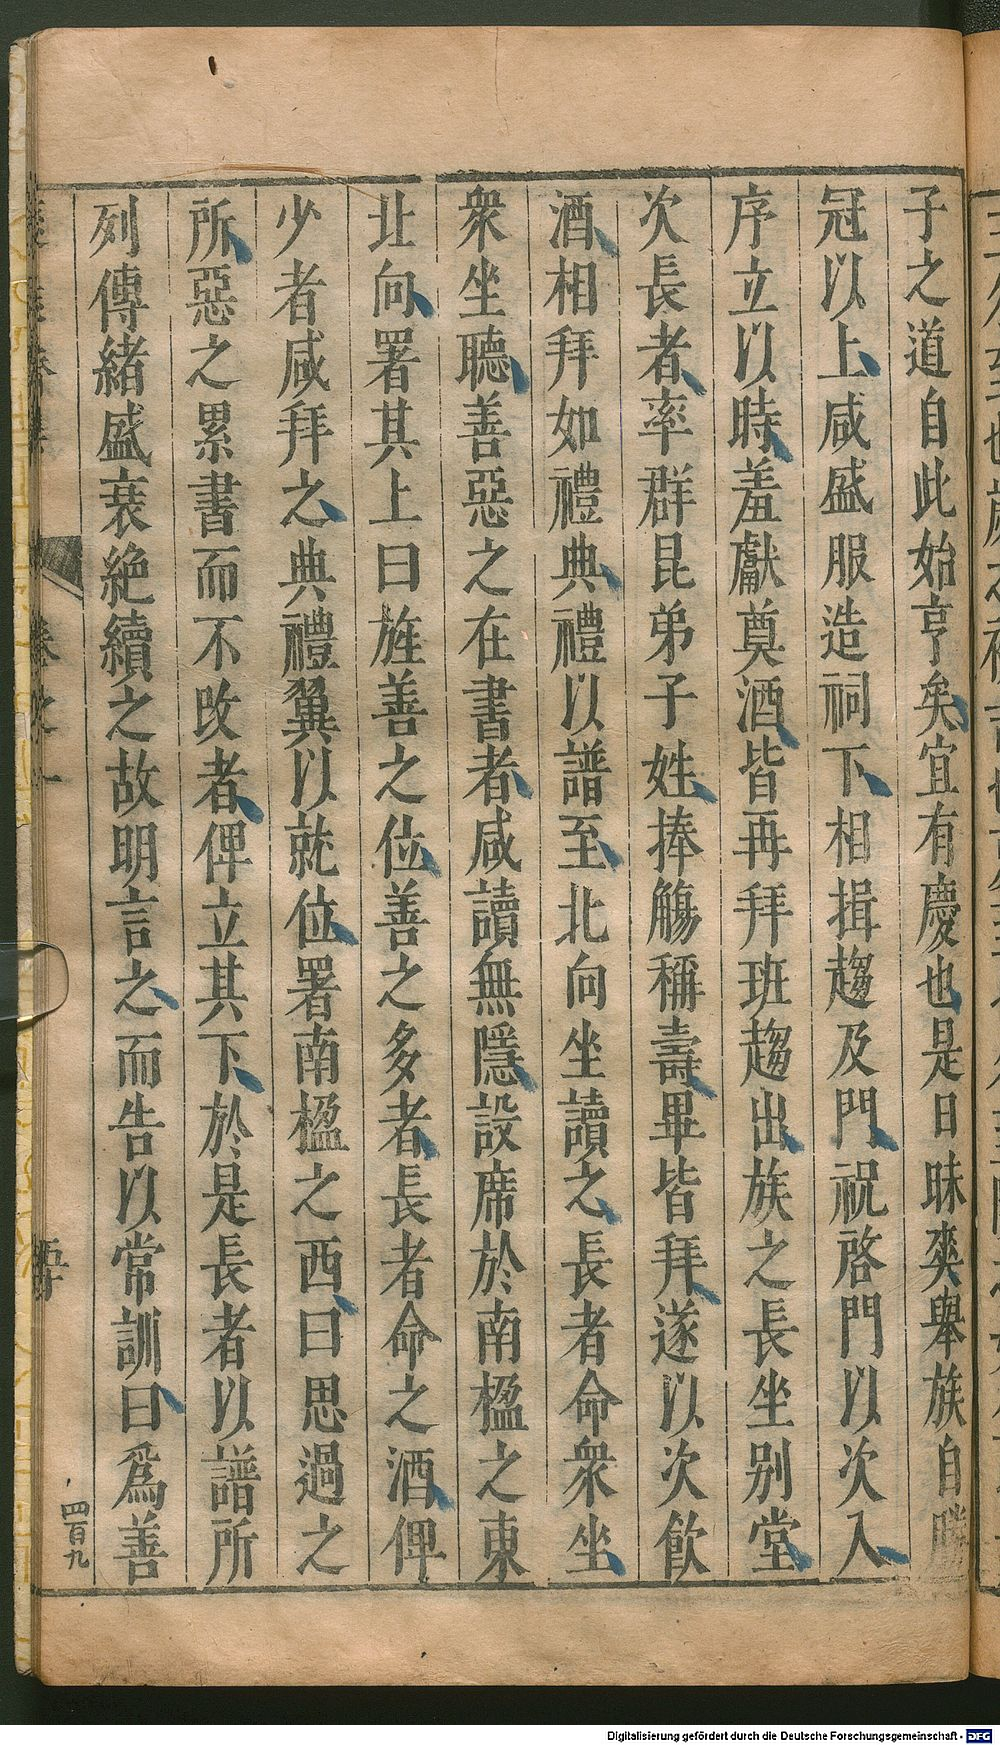 子之道自此始亨矣宜有慶也是日昧爽舉族自勝
冠以上咸盛服造祠下相揖趨及門祝啓門以次入
序立以時羞獻奠酒皆再拜班趨出族之長坐别堂
次長者率群昆弟子姓捧觴稱壽畢皆拜遂以次飲
酒相拜如禮典禮以譜至北向坐讀之長者命衆坐
衆坐聽善惡之在書者咸讀無隱設席於南楹之東
北向署其上曰旌善之位善之多者長者命之酒俾
少者咸拜之典禮翼以就位署南楹之西曰思過之
所惡之累書而不改者俾立其下於是長者以譜所
列傳緒盛衰絶續之故明言之而告以常訓曰爲善
四百九
Digitalisierung gefördert durch die Deutsche Forschungsgemeinschaft - DFG